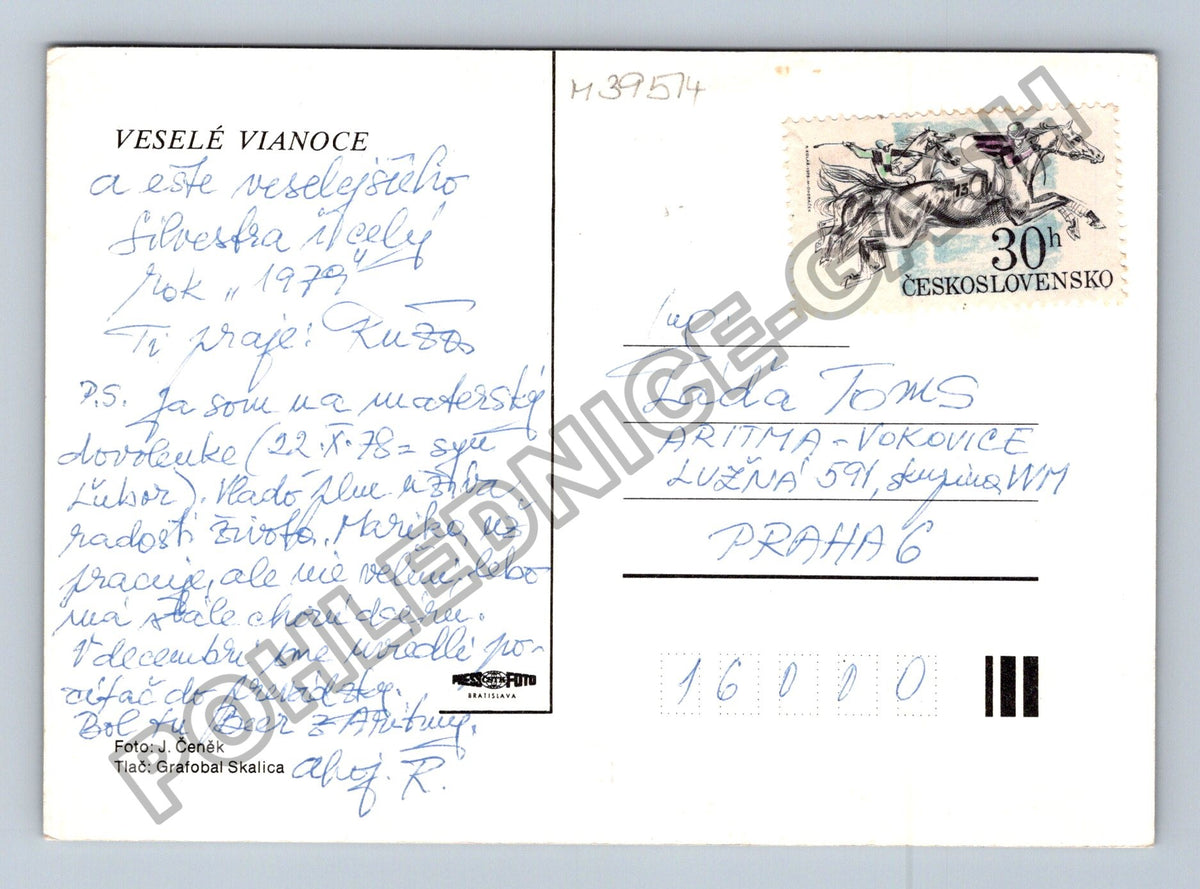 VESELÉ VIANOCE
a ešte veselejšieho
Silvestra i celý
rok „1979"
Ti praje: Ruža
P.S. Ja som na materskej
dovolenke (22.X.78 = syn
Ľubor). Vlado plne užíva
radosti života. Marika už
pracuje, ale nie veľmi, lebo
má stále chorú dcéru.
V decembri sme uviedli po-
čítač do prevádzky.
Bol tu Beer z Aritmy.
Ahoj. R.
PRESS FOTO
BRATISLAVA
Foto: J. Čeněk
Tlač: Grafobal Skalica
M 39514
30h
ČESKOSLOVENSKO
13
Ing.
Láďa TOMS
ARITMA - VOKOVICE
LUŽNÁ 591, skupina WM
PRAHA 6
16000
POHLEDNICE-GASH